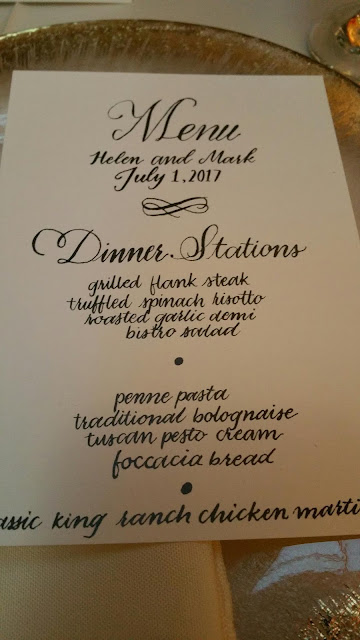 Menu
Helen and Mark
July 1, 2017
Dinner Stations
grilled flank steak
truffled spinach risotto
roasted garlic demi
bistro salad
penne pasta
traditional bolognaise
tuscan pesto cream
foccacia bread
king ranch chicken